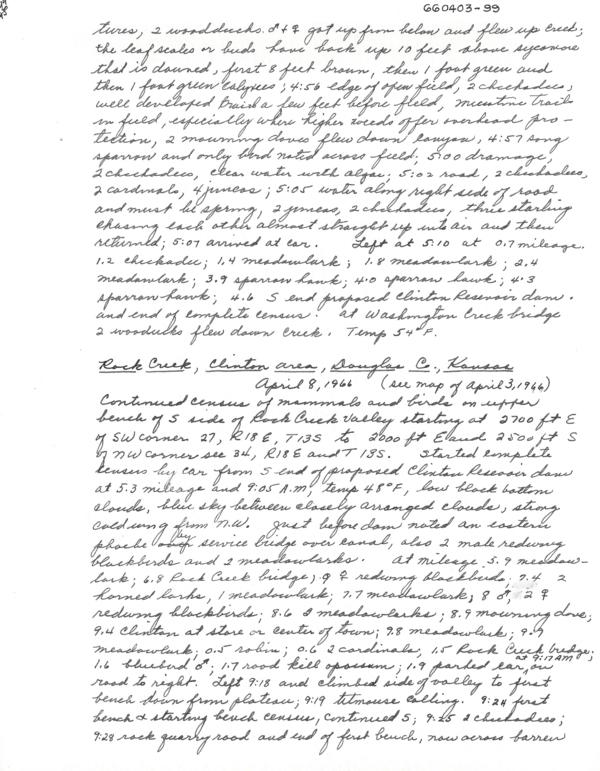 660403-99
tures, 2 woodducks ♂ + ♀ got up from below and flew up creek;
the leaf scales or buds have back up 10 feet above sycamore
that is downed, first 8 feet brown, then 1 foot green and
then 1 foot green calyxes; 4:56 edge of open field, 2 chickadees,
well developed trail a few feet before field, microtine trails
in field, especially where higher weeds offer overhead pro-
tection, 2 mourning doves flew down canyon, 4:57 song
sparrow and only bird noted across field; 5:00 drainage,
2 chickadees, clear water with algae; 5:02 road, 2 chickadees,
2 cardinals, 4 juncos; 5:05 water along right side of road
and must be spring, 2 juncos, 2 chickadees, three starling
chasing each other almost straight up into air and then
returned; 5:07 arrived at car. Left at 5:10 at 0.7 mileage.
1.2 chickadee; 1.4 meadowlark; 1.8 meadowlark; 2.4
meadowlark; 3.9 sparrow hawk; 4.0 sparrow hawk; 4.3
sparrow hawk; 4.6 S end proposed Clinton Resevoir dam.
and end of complete census. At Washington Creek bridge
2 wooducks flew down creek. Temp 54°F.
Rock Creek, Clinton area, Douglas Co., Kansas
April 8, 1966 (see map of April 3, 1966)
Continued census of mammals and birds on upper
bench of S side of Rock Creek Valley starting at 2700 ft E
of SW corner 27, R18E, T13S to 2000 ft E and 2500 ft S
of NW corner sec 34, R18E and T13S. Started complete
census by car from S end of proposed Clinton Resevoir dam
at 5.3 mileage and 9:05 A.M., temp 48°F, low black bottom
clouds, blue sky between closely arranged clouds, strong
cold wing from N.W. Just before dam noted an eastern
phoebe by service bridge over canal, also 2 male redwing
blackbirds and 2 meadowlarks. At mileage 5.9 meadow-
lark; 6.8 Rock Creek bridge; 9 ♀ redwing blackbirds; 7.4 2
horned larks, 1 meadowlark; 7.7 meadowlark; 8 ♂, 2 ♀
redwing blackbirds; 8.6 2 meadowlarks; 8.9 mourning dove;
9.4 Clinton at store or center of town; 9.8 meadowlark; 9.9
meadowlark; 0.5 robin; 0.6 2 cardinals, 1.5 Rock Creek bridge;
1.6 bluebird ♂; 1.7 road kill opossum; 1.9 parked car, on at 9:17 AM
road to right. Left 9:18 and climbed side of valley to first
bench down from plateau; 9:19 titmouse calling. 9:24 first
bench & starting bench census, continued S; 9:25 2 chickadees;
9:28 rock quarry road and end of first bench, now across barren